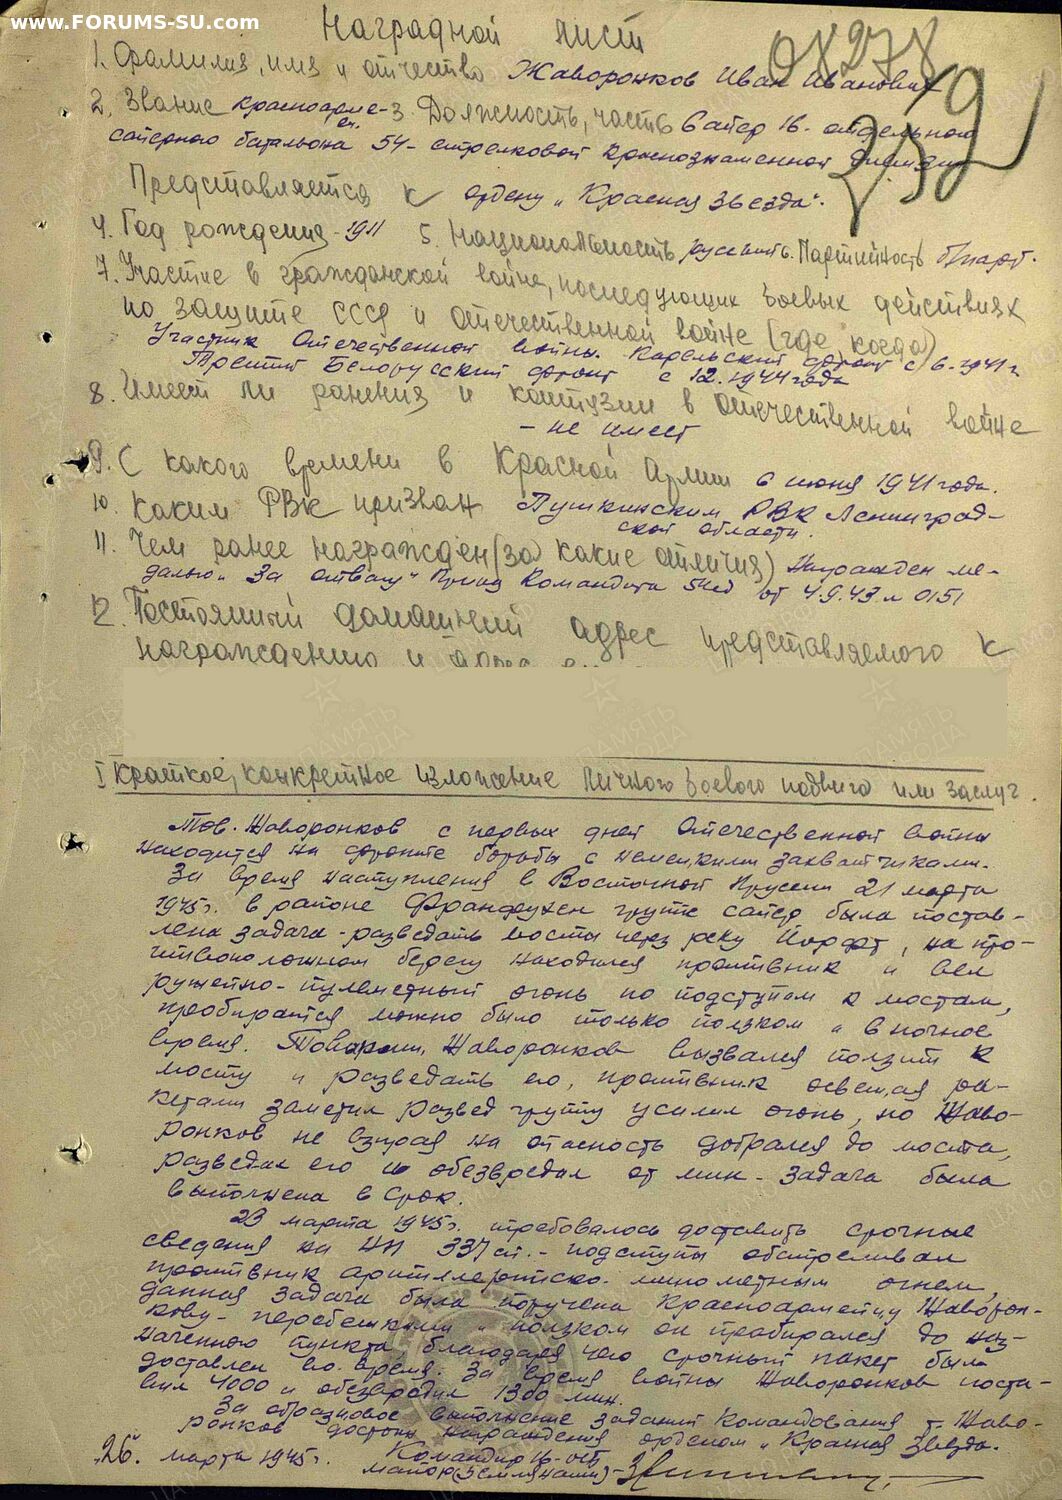 www.FORUMS-SU.com
Наградной лист
08278
1. Фамилия, имя и отчество Жаворонков Иван Иванович
2. Звание красноарме- 3. Должность, часть сапер 16-отдельного
ец.
саперного батальона 54- стрелковой краснознаменной дивизии
Представляется к ордену "Красная звезда".
4. Год рождения-1911 5. Национальность русский 6. Партийность б/парт.
7. Участие в гражданской войне, последующих боевых действиях
по защите СССР и отечественной войне (где, когда)
Участник Отечественной войны. Карельский фронт с 6.1941г
Третий Белорусский фронт с 12.1944 года
8. Имеет ли ранения и контузии в отечественной войне
- не имеет
9. С какого времени в Красной Армии с июня 1941 года.
10. Каким РВК призван Пушкинским РВК Ленинград-
ской области.
11. Чем ранее награжден (за какие отличия) Награжден ме-
далью "За отвагу" Приказ Командира 54сд от 4.9.43 н 0151
12. Постоянный домашний адрес представляемого к
награждению и адрес
I Краткое, конкретное изложение личного боевого подвига или заслуг.
Тов. Жаворонков с первых дней Отечественной войны
находится на фронте борьбы с немецкими захватчиками.
За время наступления в Восточной Пруссии 21 марта
1945г. в районе группе сапер была постав-
лена задача - разведать мосты через реку , на про-
тивоположном берегу находился противник и вел
ружейно-пулеметный огонь по подступам к мостам,
пробираться можно было только ползком и в ночное
время. Товарищ Жаворонков вызвался ползти к
мосту и разведать его, противник освещая ра-
кетами заметил развед группу усилил огонь, но Жаво-
ронков не взирая на опасность добрался до моста,
разведал его и обезвредил от мин - задача была
выполнена в срок.
23 марта 1945г. требовалось доставить срочные
сведения на НП 337сп. - подступы обстреливал
противник артиллерийско-минометным огнем,
данная задача была поручена красноармейцу Жаворон-
кову - перебежками и ползком он пробирался до наз-
наченного пункта, благодаря чего срочный пакет был
доставлен во время. За время войны Жаворонков поста-
вил 4000 и обезвредил 1300 мин.
За образцовое выполнение заданий командования т. Жаво-
ронков достоин награждения орденом "Красная Звезда".
"26" марта 1945г. Командир 16-осб
майор (Земляницин)